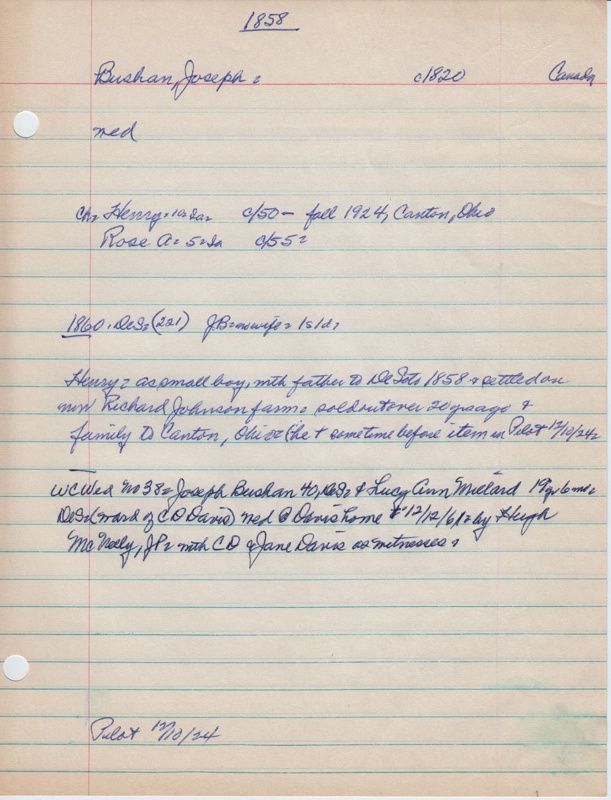 1858
Bushan, Joseph = c1820 Canada
med
ch= Henry = 10 Ia= c/50 - fall 1924, Canton, Ohio
Rose A = 5 = Ia c/55 =
1860. DeS= (221) JB= no wife = 1s 1d=
Henry = as small boy, with father to DeSoto 1858 & settled on
now Richard Johnson farm = sold out over 20 yrs ago &
family to Canton, Ohio = (he + sometime before item in Pilot 12/10/24=
WC Wed No 38 = Joseph Bushan 40, DeS= & Lucy Ann Millard 19 yr 6 mo =
DeS= (ward of C D Davis) med @ Davis home 12/12/61 = by Hugh
McNeely, JP = with C D & Jane Davis as witnesses =
Pilot 12/10/24